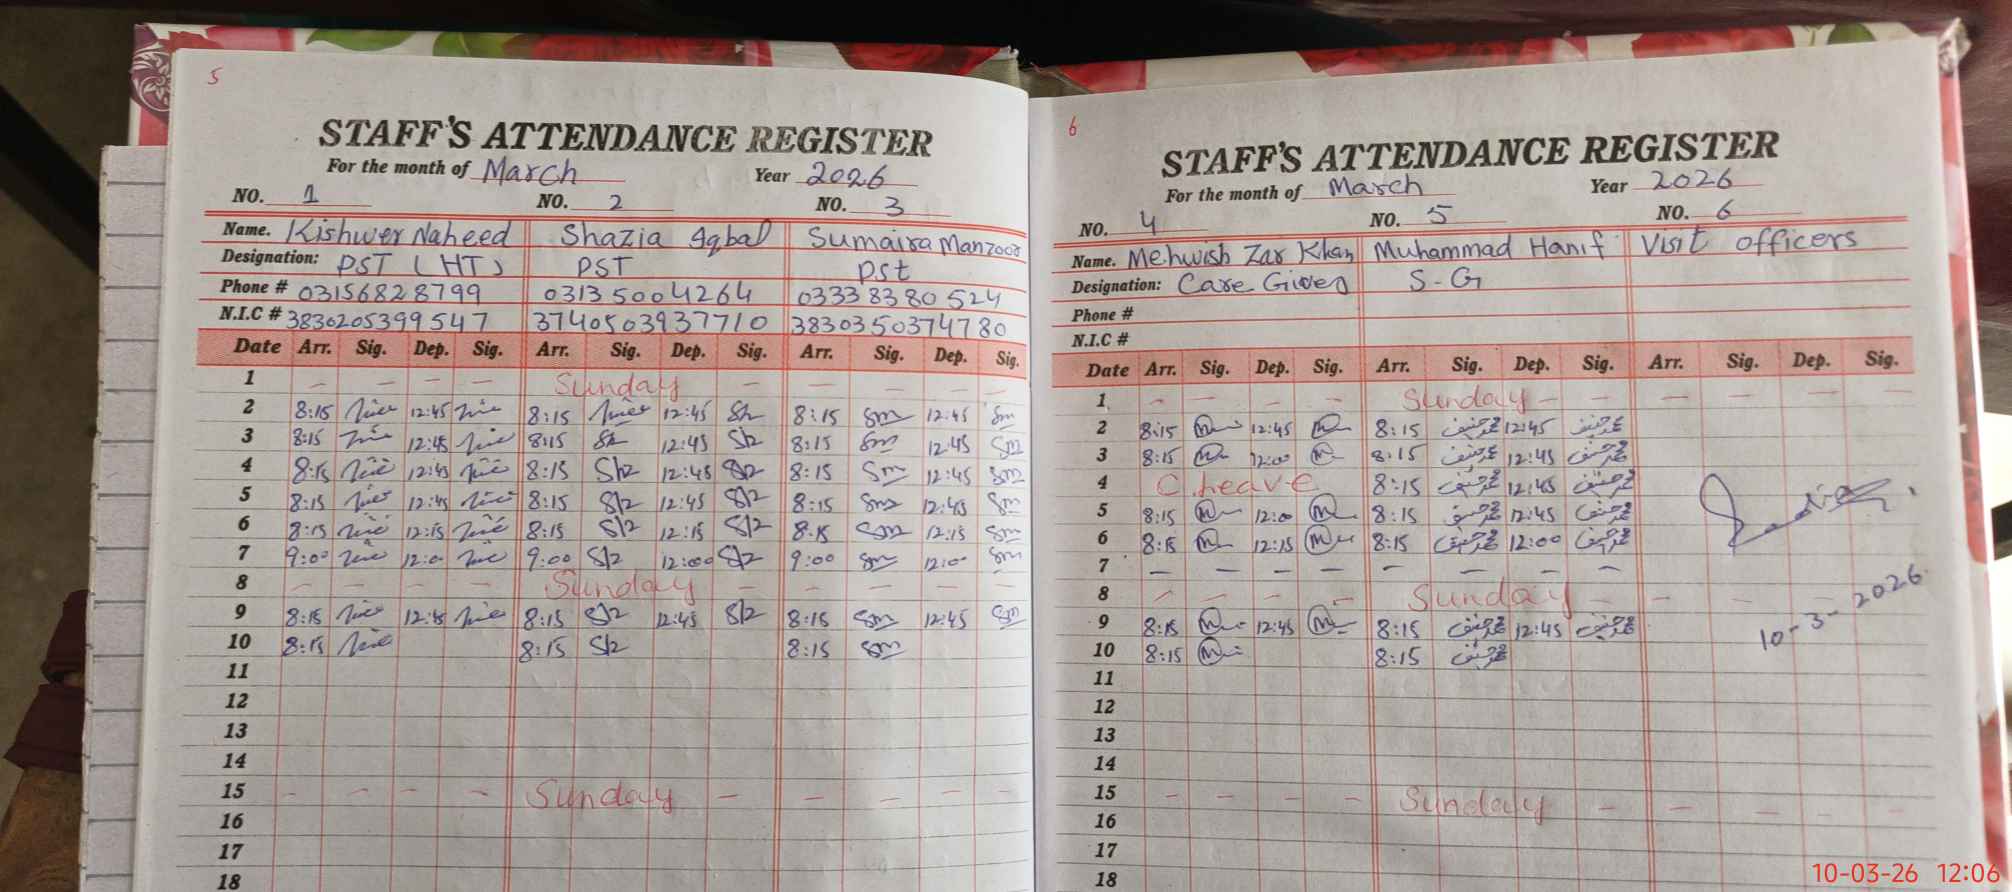 5
STAFF'S ATTENDANCE REGISTER
For the month of March Year 2026
NO. 1 NO. 2 NO. 3
Name. Kishwer Naheed Shazia Aqbal Sumaira Manzoor
Designation: PST (HT) PST Pst
Phone # 03156828799 03135004264 03338380524
N.I.C # 3830205399547 3740503937710 3830350374780
Date Arr. Sig. Dep. Sig. Arr. Sig. Dep. Sig. Arr. Sig. Dep. Sig.
1 – – – – Sunday – – – – –
2 8:15 12:45 8:15 12:45 Sh 8:15 sm 12:45 sm
3 8:15 12:45 8:15 Sh 12:45 Sh 8:15 sm 12:45 sm
4 8:15 12:45 8:15 Sh 12:45 Sh 8:15 sm 12:45 sm
5 8:15 12:45 8:15 Sh 12:45 Sh 8:15 sm 12:45 sm
6 8:15 12:15 8:15 Sh 12:15 Sh 8:15 sm 12:15 sm
7 9:00 12:00 9:00 Sh 12:00 Sh 9:00 sm 12:00 sm
8 – – – – Sunday – – – – –
9 8:15 12:45 8:15 Sh 12:45 Sh 8:15 sm 12:45 sm
10 8:15 8:15 Sh 8:15 sm
11
12
13
14
15 – – – – Sunday – – – – –
16
17
18
6
STAFF'S ATTENDANCE REGISTER
For the month of March Year 2026
NO. 4 NO. 5 NO. 6
Name. Mehwish Zar Khan Muhammad Hanif Visit officers
Designation: Care Giver S-G
Phone #
N.I.C #
Date Arr. Sig. Dep. Sig. Arr. Sig. Dep. Sig. Arr. Sig. Dep. Sig.
1 – – – – Sunday – – – – –
2 8:15 M 12:45 M 8:15 محمد حنیف 12:45 محمد حنیف
3 8:15 M 12:00 M 8:15 محمد حنیف 12:45 محمد حنیف
4 C.Leave 8:15 محمد حنیف 12:45 محمد حنیف
5 8:15 M 12:00 M 8:15 محمد حنیف 12:45 محمد حنیف
6 8:15 M 12:15 M 8:15 محمد حنیف 12:00 محمد حنیف
7 – – – – – – – –
8 – – – – Sunday – – – –
9 8:15 M 12:45 M 8:15 محمد حنیف 12:45 محمد حنیف
10 8:15 M 8:15 محمد حنیف
10-3-2026
11
12
13
14
15 – – – – Sunday – – – – –
16
17
18
10-03-26 12:06